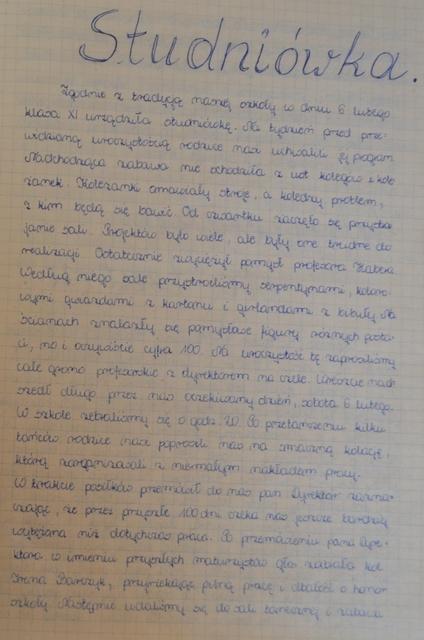 Studniówka.
Zgodnie z tradycją naszej szkoły w dniu 6 lutego
klasa XI urządziła studniówkę. Na tydzień przed prze-
widzianą uroczystością rodzice nasi uchwalili jej program.
Nadchodząca zabawa nie schodziła z ust kolegów i kole
żanek. Koleżanki omawiały stroje, a koledzy problem,
z kim będą się bawić. Od czwartku zaczęło się przystra
janie sali. Projektów było wiele, ale były one trudne do
realizacji. Ostatecznie zwyciężył pomysł profesora
Według niego salę przystroiliśmy serpentynami, koloro-
wymi girlandami z kartonu i girlandami z bibuły. Na
ścianach znalazły się pomysłowe figury różnych posta-
ci, no i oczywiście cyfra 100. Na uroczystość tę zaprosiliśmy
całe grono profesorskie z dyrektorem na czele. Wreszcie nad-
szedł długo przez nas oczekiwany dzień, sobota 6 lutego.
W szkole zebraliśmy się o godz. 20. Po przetańczeniu kilku
tańców rodzice nasi poprosili nas na smaczną kolację,
którą zorganizowali z niemałym nakładem pracy.
W trakcie posiłków przemówił do nas pan Dyrektor zazna-
czając, że przez przyszłe 100 dni czeka nas jeszcze bardziej
wytężona niż dotychczas praca. Po przemówieniu pana Dyre-
ktora w imieniu przyszłych maturzystów głos zabrała kol.
Irena przyrzekając pilną pracę i dbałość o honor
szkoły. Następnie udaliśmy się do sali tanecznej i zabawa